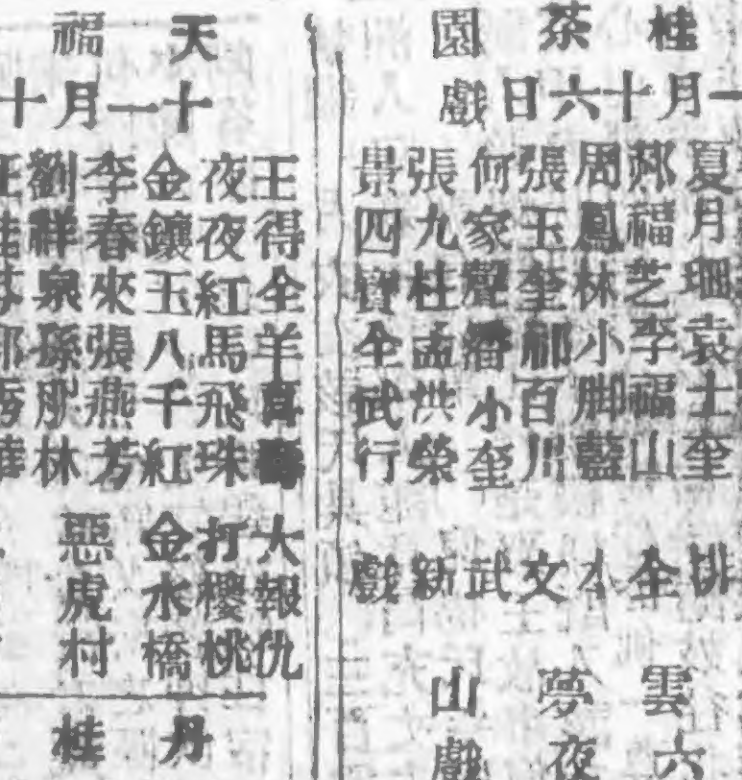 桂茶園
一月十六日戲
夏月珊袁士奎
郝福芝李福山
周鳳林小脚藍
張玉奎祁百川
何家聲潘小奎
張九柱孟洪榮
景四寶全武行
排全本文武新戲
雲夢山
六夜戲
天福
十一月十
王得全羊
大報仇
夜夜紅馬飛珠
打櫻桃
金鑲玉八千紅
金水橋
李春來張燕芳
劉祥泉孫肥林
惡虎村
丹桂